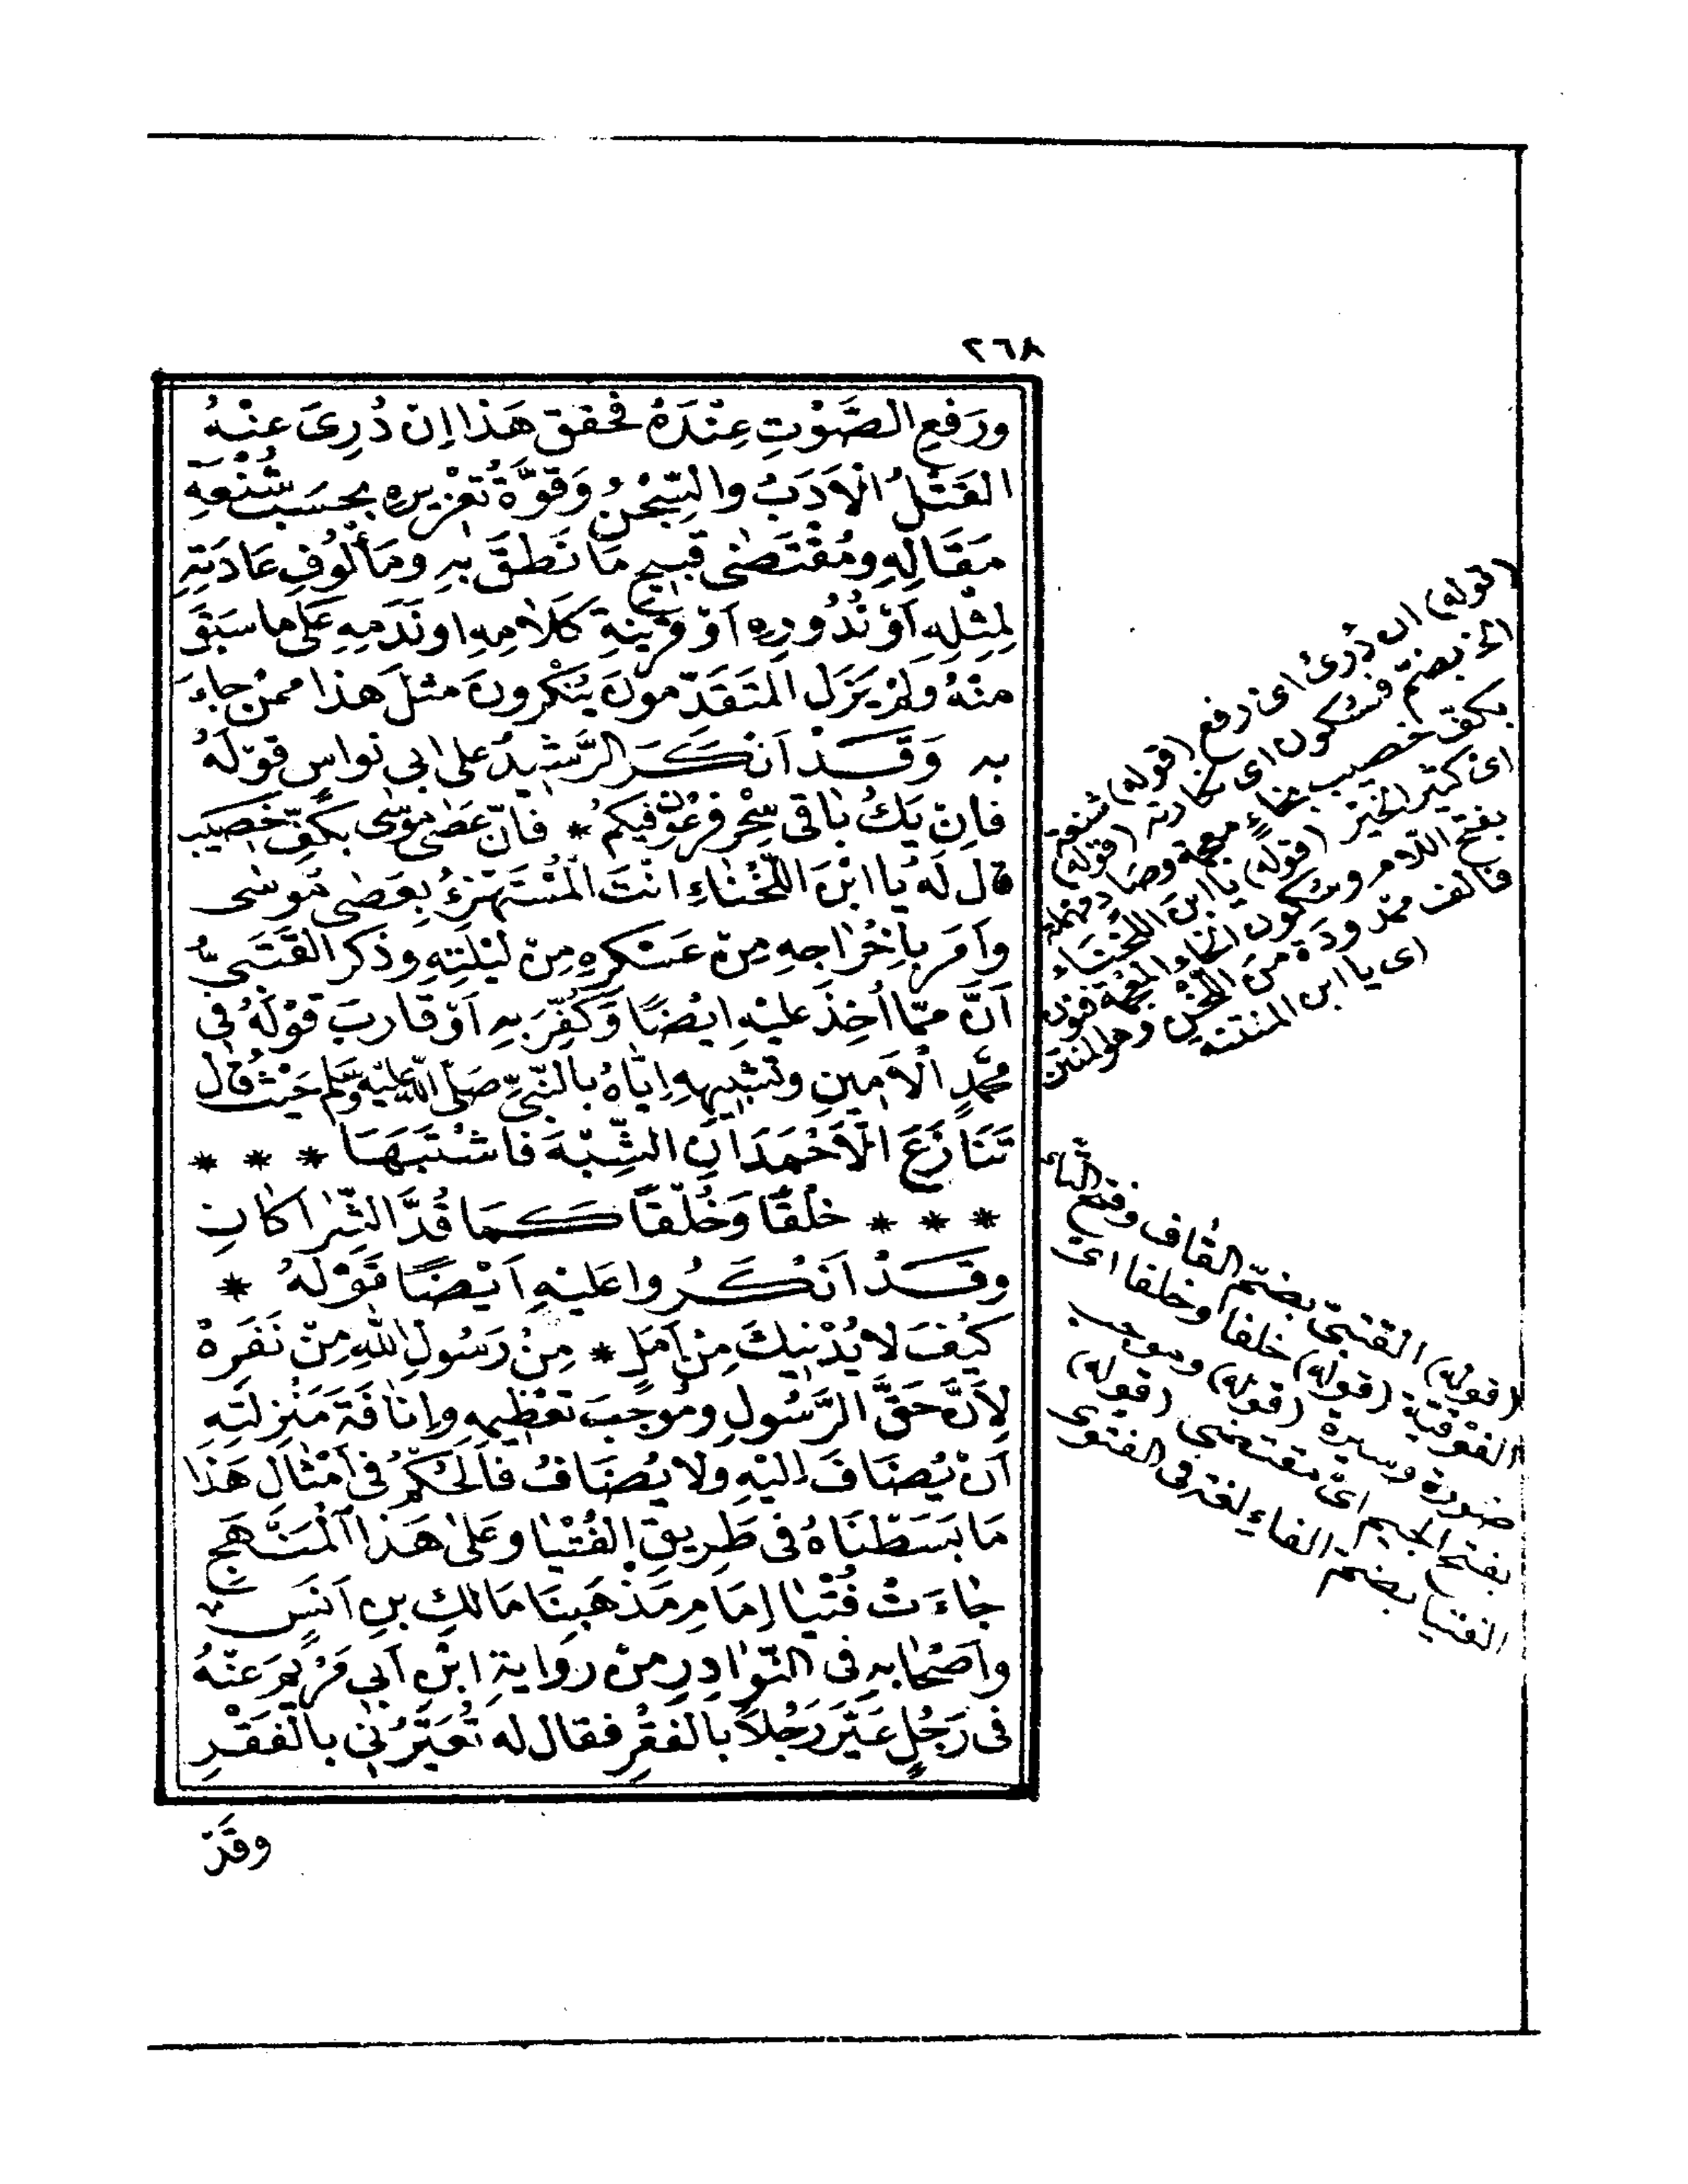 ٢٦٨
ورَفعِ الصَّوْتِ عِنْدَهُ فَحَقق هَذا اِن دُرِئَ عَنْهُ
القَتْلُ الاَدَبُ والسِّجْنُ وَقوَّةُ تَعْزيره بحسَب شُنْعَةِ
مَقَالِهِ ومُقْتَضٰى قبيح مَا نَطَقَ بهِ ومَأْلُوفِ عَادَتِهِ
لِمِثْلِهِ اَوْ نُدُورِه اَوْ قَرِينةِ كَلَامِهِ او نَدَمِهِ عَلى ما سَبَقَ
منْهُ وَلمْ يَزَل المتَقَدّمونَ يُنْكرونَ مثلَ هذا ممنْ جاءَ
به وَقَدْ اَنْكَرَ الرَّشيدُ على ابي نواسٍ قوْلَهُ
فاِن يَكُ بَاقى سِحْر فرْعَوْن فيكمُ * فانّ عَصٰى موُسٰى بكَفِّ خصيب
قال لَهُ يا ابْنَ اللَّخْنَاءِ انْتَ المُسْتَهْزِئُ بِعَصٰى مُوسٰى
وَاَمَر بِاِخْرَاجِهِ مِنْ عَسْكرِهِ مِنْ لَيْلَتِهِ وذكر القُتَبِيُّ
اَنَّ ممّا اُخِذَ عليْهِ ايْضًا وَكُفِّرَ بهِ اَوْ قارَبَ قوْلَهُ فى
مُحَمَّدٍ الاَمينِ وتشْبيهِهِ اِيَّاهُ بالنَّبيّ صَلَّى اللهُ عَلَيْهِ وَسَلَّم حَيْثُ قال
تَنَازَعَ الاَحْمَدَانِ الشِّبْهَ فاشْتَبَهَا * * *
* * * خَلْقًا وَخُلُقًا كَمَا قُدَّ الشِّرَاكَانِ
وقَدْ اَنْكَرُوا عَلَيْهِ اَيْضًا قَوْلَهُ *
كيْفَ لا يُدْنيكَ مِنْ اَمَلٍ * مِنْ رَسُولِ اللهِ مِنْ نَفَرِهْ
لِاَنَّ حَقَّ الرَّسُولِ ومُوجَبَ تعْظِيمِهِ واِنَافَةَ مَنْزلَتِهِ
اَنْ يُضَافَ اِليْهِ ولا يُضَافُ فَالحُكْمُ فى اَمْثَال هَذَا
مَا بَسَطْنَاهُ فى طَرِيق الفُتْيَا وعَلٰى هَذا المَنْهَجِ
جَاءَتْ فُتْيَا اِمَامِ مَذْهَبِنَا مَالكِ بنِ اَنَسٍ
واَصْحَابِهِ فى النَّوَادِرِ منْ رِوايةِ ابْنِ اَبي مَرْيمَ عَنْهُ
فى رَجُلٍ عَيَّرَ رَجُلاً بالفَقْرِ فقال له تُعَيِّرُني بالْفَقْرِ
وقَدْ
(قوله) ان دُرئَ اى دفع (قوله) شنعة
الخ بضمّ فسكون اى نكارته (قوله)
بكفّ خصيب بخاءٍ معجمة وصاد مهملة
اى كثير الخير (قوله) يا ابن اللخناء
بفتح اللام وسكون الخاء المعجمة فنون
فالف ممدودة منَ اللخْنِ وهو النتن
اى يا ابن المنتنة
(قوله) القتبىّ بضمّ القاف وفتح التاء
الفوْقيّة (قوله) خلقا وخلقا اى
صورة وسيرة (قوله) وموجب
بفتح الجيم اىْ مقتضى (قوله)
الفتيا بضمّ الفاءِ لغة فى الفتوى